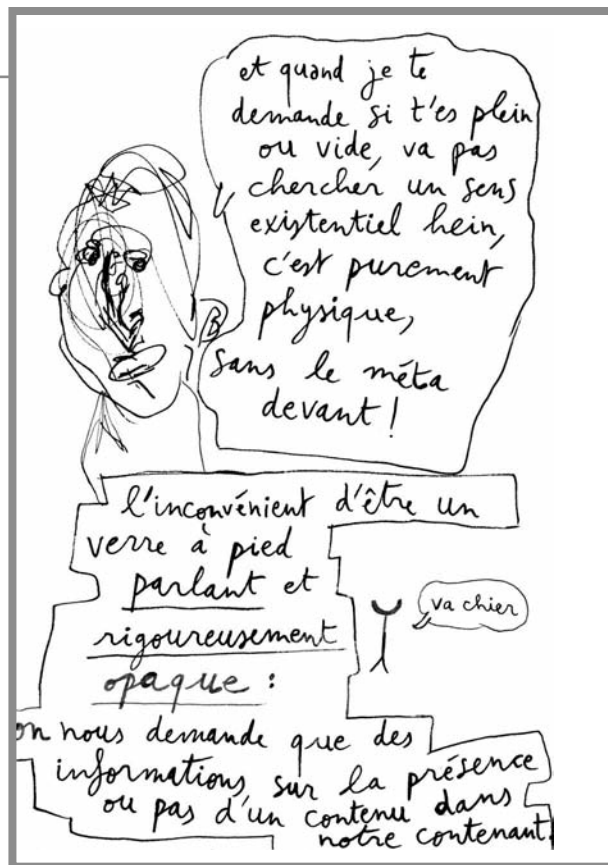 et quand je te
demande si t'es plein
ou vide, va pas
chercher un sens
existentiel hein,
c'est purement
physique,
sans le méta
devant !
l'inconvénient d'être un
verre à pied
parlant et
rigoureusement
opaque :
va chier
on nous demande que des
informations sur la présence
ou pas d'un contenu dans
notre contenant.